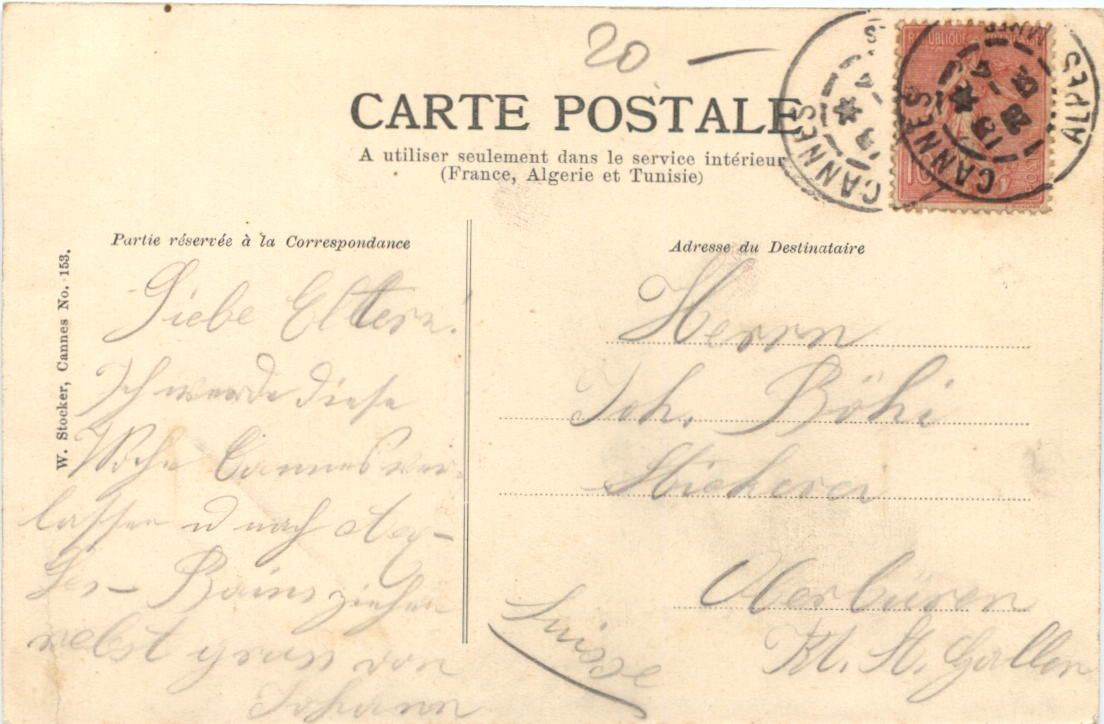 20 —
CARTE POSTALE
A utiliser seulement dans le service intérieur
(France, Algerie et Tunisie)
REPUBLIQUE
10
CANNES
CANNES
ALPES
Partie réservée à la Correspondance
Adresse du Destinataire
W. Stocker, Cannes No. 153.
Liebe Eltern!
Ich werde diese
Woche Cannes ver
lassen u nach
Les-Bains ziehen
nebst gruss von
Johann
Herrn
Joh. Böhi
Stickerei
Oberbüren
Kt. St. Gallen
Suisse